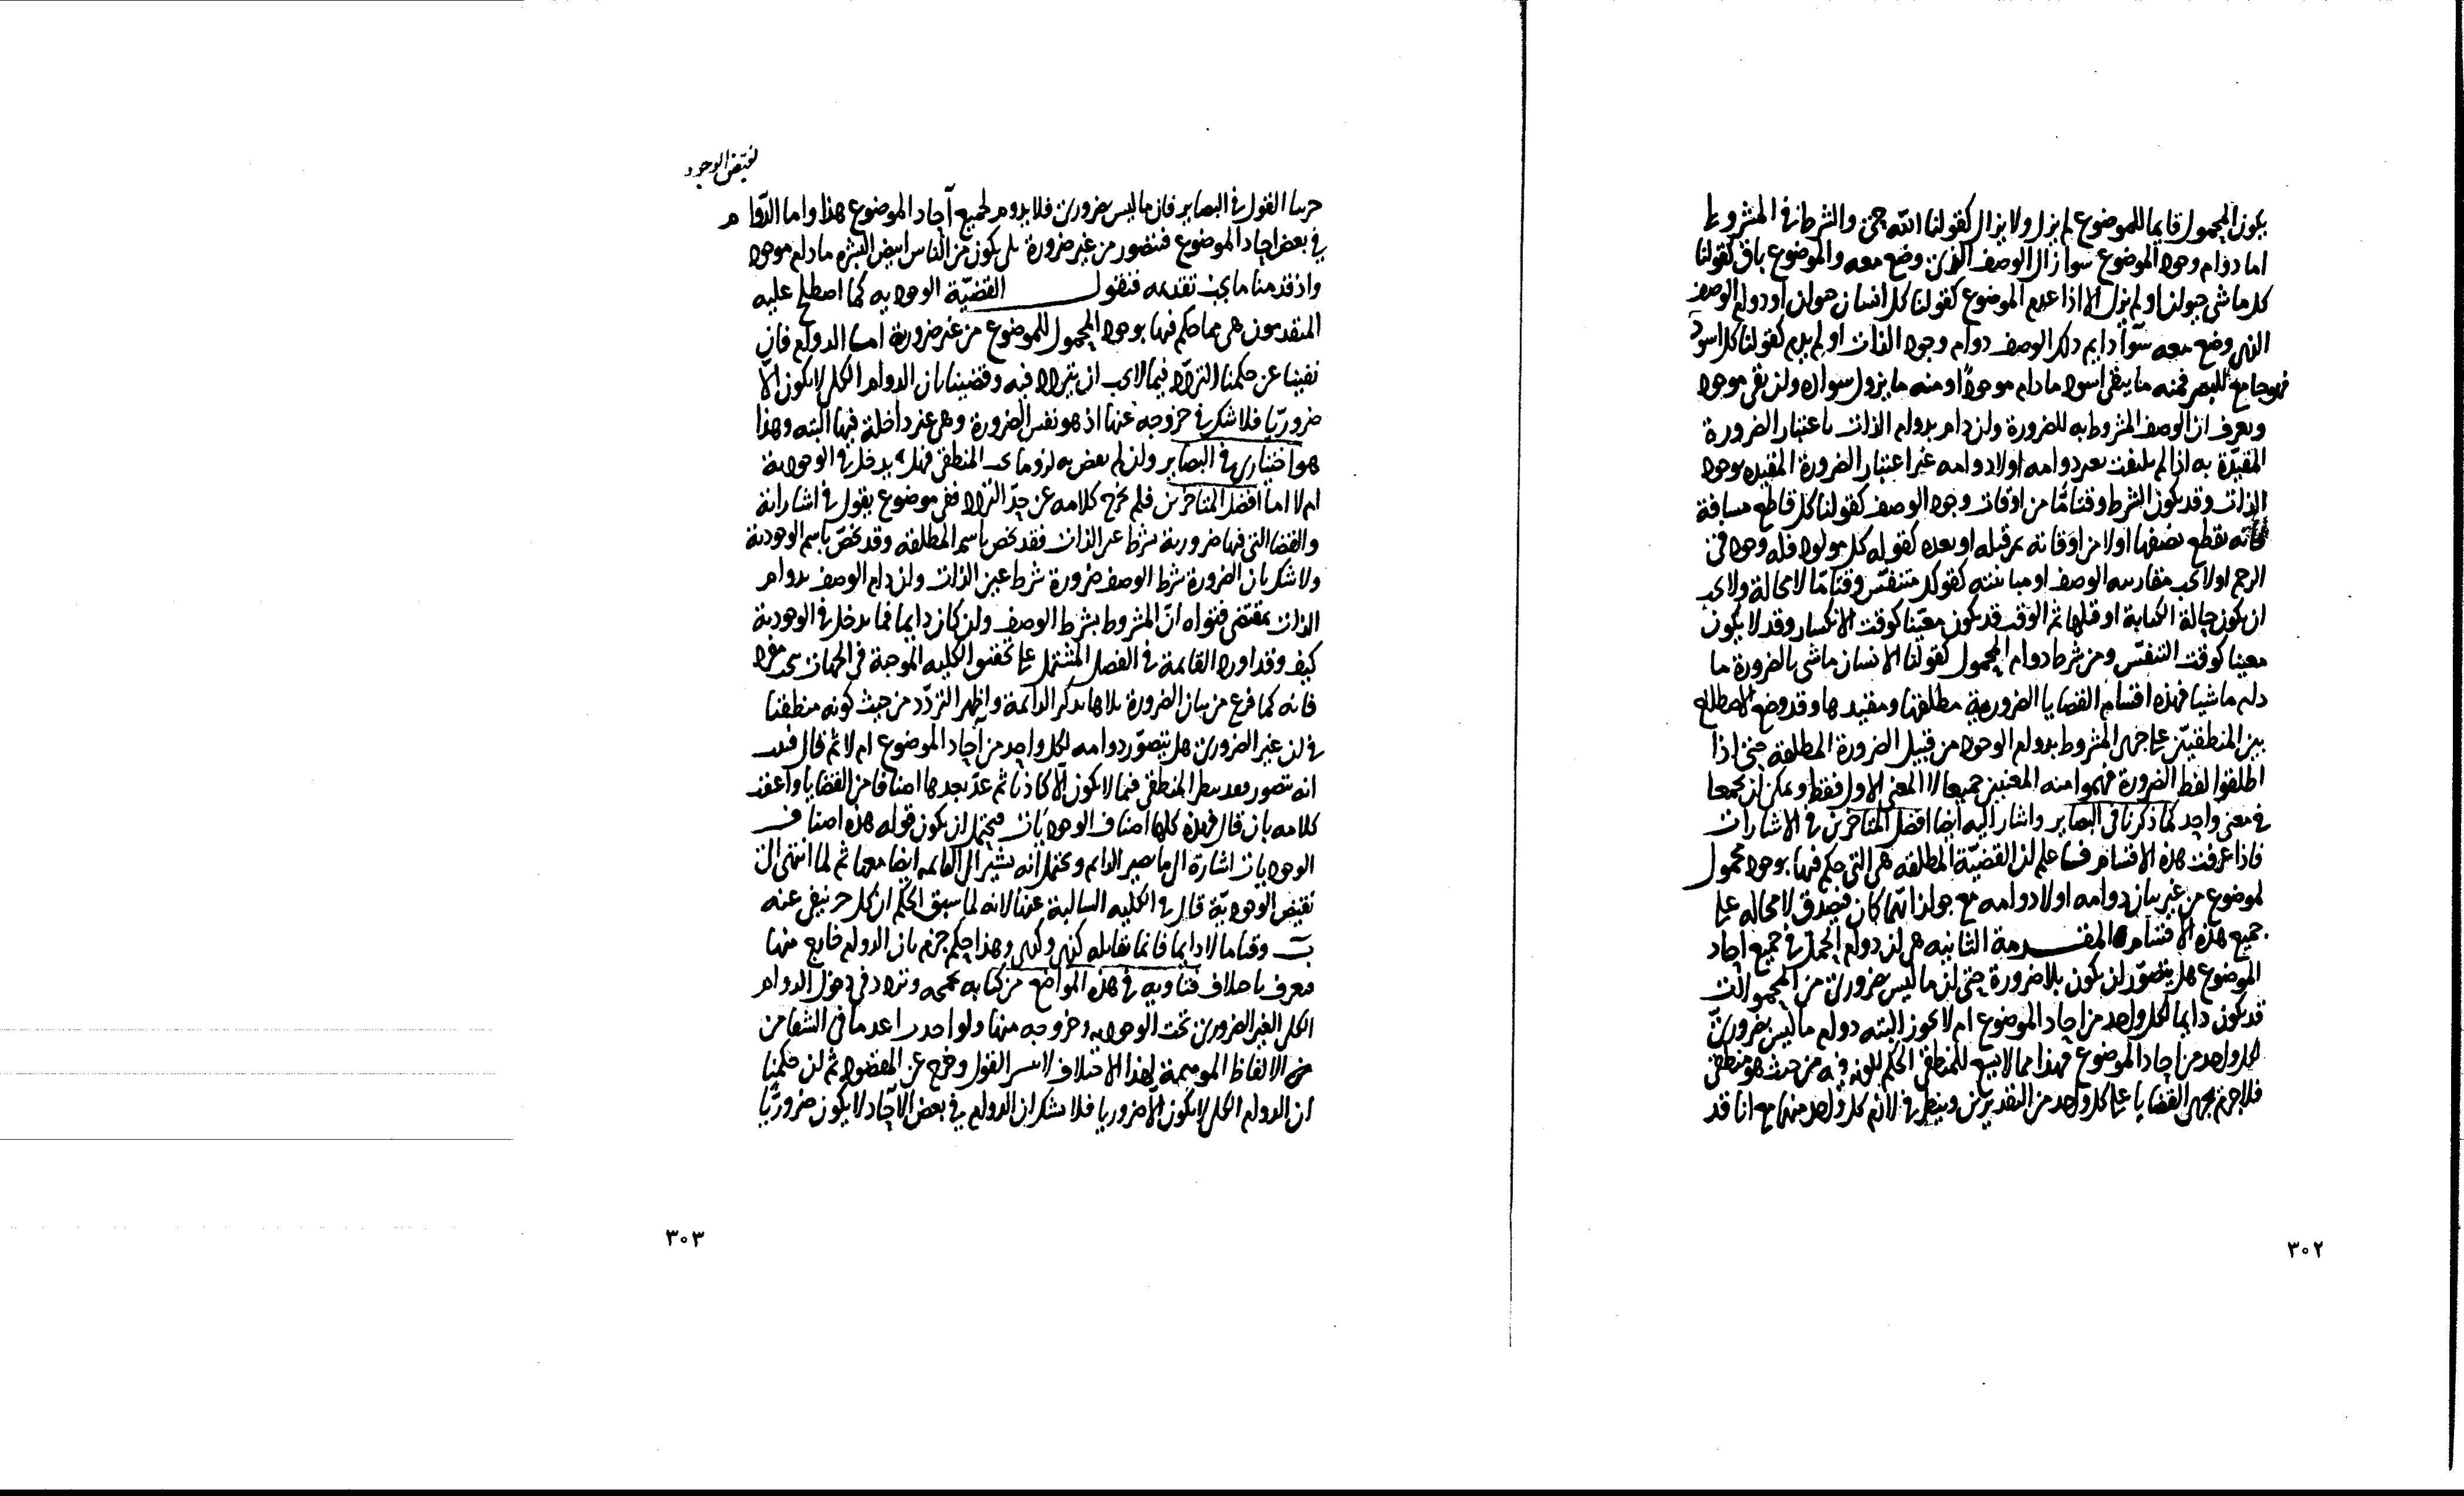 يكون المحمول قايما للموضوع لم يزل ولا يزال كقولنا الله حي والشرط في المشروط
اما دوام وجود الموضوع سوا زال الوصف الذي وضع معه والموضوع باق كقولنا
كل ماشي حيوان او لم يزل الا اذا عدم الموضوع كقولنا كل انسان حيوان او دوام الوصف
الذي وضع معه سوآ دايم ذلك الوصف دوام وجود الذات او لم يدم كقولنا كل اسود
فهو جامع للبصر فمنه ما يبقى اسود ما دام موجودًا ومنه ما يزول سواده ولن بقي موجود
ويعرف ان الوصف المشروط به للضرورة ولن دام بدوام الذات باعتبار الضرورة
المقيّدة به اذا لم يلتفت نحو دوامه او لا دوامه غير اعتبار الضرورة المقيده بوجود
الذات وقد يكون الشرط وقتا مّا من اوقات وجود الوصف كقولنا كل قاطع مسافة
فانه يقطع نصفها اولا من اوقاته من قبله او بعده كقوله كل مولود فله وجود في
الرحم اولا يجب مقارنته الوصف او مباينته كقولك متنفّس وقتا مّا لا محالة ولا يجب
ان يكون حالة الكتابة او قبلها ثم الوقت قد يكون معيّنا كوقت الانكسار وقد لا يكون
معينا كوقت التنفّس ومن شرط دوام المحمول كقولنا الانسان ماشي بالضرورة ما
دام ماشيا فهذه اقسام القضايا الضرورية مطلقها ومقيدها وقد وضع الاصطلاح
بين المنطقيّين على جعل المشروط بدوام الوجود من قبيل الضرورة المطلقة حتى اذا
اطلقوا لفظ الضرورة فهموا منه المعنيين جميعا لا المعنى الاول فقط ويمكن ان يجمعا
في معنى واحد كما ذكرنا في البصاير واشار اليه ايضا افضل المتاخرين في الاشارات
فاذا عرفت هذه الاقسام فاعلم لن القضيّة المطلقه هي التي حكم فيها بوجود محمول
لموضوع من غير بيان دوامه او لا دوامه مع جواز ايهما كان فيصدق لا محاله على
جميع هذه الاقسام المقدمة الثانيه هي لن دوام الحمل في جميع احاد
الموضوع هل يتصوّر لن يكون بلا ضرورة حتى لن ما ليس بضروري من المحمولات
قد يكون دايما لكل واحد من احاد الموضوع ام لا يجوز البته دوام ما ليس بضروري
لكل واحد من احاد الموضوع فهذا مما لا يسع للمنطقي الحكم فيه من حيث هو منطقي
فلا جرم نجري القضايا على كل واحد من التقديرين وينظر في لازم كل واحد منهما مع انا قد
٣٠٢
نقيض الوجود
القول في البصاير فان ما ليس بضروري فلا يدوم لجميع آحاد الموضوع هذا واما الدّوام
في بعض احاد الموضوع فنتصور من غير ضرورة بل يكون من الناس ابيض البشره ما دام موجود
واذ قدمنا ما يجب تقديمه فنقول القضيّة الوجوديه كما اصطلح عليه
المتقدمون هي مما حكم فيها بوجود المحمول للموضوع من غير ضرورة اما الدوام فان
نفينا عن حكمنا التردّد فيما لا يجب ان يتردد فيه وقضينا بان الدوام الكلي لا يكون الا
ضروريّا فلا شك في خروجه عنها اذ هو نفس الضرورة وهي غير داخلة فيها البته وهذا
هو اختياري في البصاير ولن لم يعض به لزوما يجب المنطقي فهل يدخل في الوجودية
ام لا اما افضل المتاخرين فلم يخرج كلامه عن حدّ التردد ففي موضوع يقول في اشاراته
والقضايا التي فيها ضرورية بشرط غير الذات فقد تخص باسم المطلقه وقد تخصّ باسم الوجودية
ولا شك بان الضرورة بشرط الوصف ضرورة بشرط غير الذات ولن دام الوصف بدوام
الذات بمقتضى فتواه انّ المشروط بشرط الوصف ولن كان دايما فما يدخل في الوجودية
كيف وقد اورد القايمة في الفصل المشتمل على تحقيق الكليه الموجبة في الجهات
فانه كما فرغ من بيان الضرورة تلاها بذكر الدايمة واظهر التردّد من حيث كونه منطقيا
في لن غير الضروري هل يتصوّر دوامه لكل واحد من آحاد الموضوع ام لا ثم قال
انه يتصور فعند نظر المنطقي فيما لا يكون الا كاذبا ثم عدّ بعدها اصنافا من القضايا واعقب
كلامه بان قال فهذه كلها اصناف الوجوديات فيحتمل ان يكون قوله هذه اصناف
الوجوديات اشارة الى ما سوى الدايم ويحتمل انه يشير الى القايمه ايضا معها ثم لما انتهى الى
نقيض الوجوديّة قال في الكليه السالبة عنها لانه لما سبق الحكم ان كل ج ينفى عنه
ب وقتا ما لا دايما فانما تقابله وهذا حكم جزم بان الدوام خارج منها
فعرف باختلاف فتاويه في هذه المواضع من كتابه تحيره وتردد في دخول الدوام
الكلي الغير الضروري تحت الوجوديه وخروجه منها ولو اخذت اعد ما في الشفا من
من الالفاظ الموهمة لهذا الاختلاف لانتشر القول وخرج عن المقصود ثم لن حكمنا
ان الدوام الكلي لا يكون الا ضروريا فلا نشك ان الدوام في بعض الآحاد لا يكون ضروريّا
٣٠٣